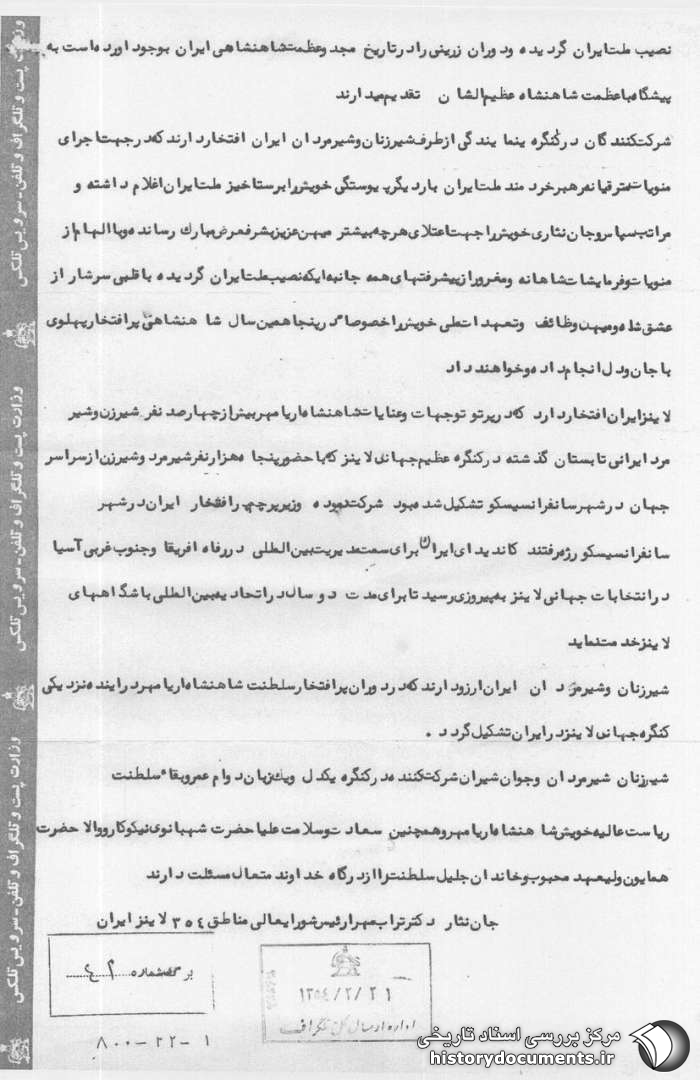 نصیب ملت ایران گردیده ودوران زرینی راد رتاریخ مجد وعظمت شاهنشاهی ایران بوجود اورده است به
پیشگاه باعظمت شاهنشاه عظیم الشان تقدیم میدارند
شرکت کنندگان درکنگره بنمایندگی ازطرف شیرزنان وشیرمردان ایران افتخاردارند که درجهت اجرای
منویات مترقیانه رهبر خردمند ملت ایران باردیگر پیوستگی خویش را برستاخیز ملت ایران اعلام داشته و
مراتب سپاس وجان نثاری خویش را جهت اعتلای هرچه بیشتر میهن عزیز بشرفعرض مبارك رسانده وباالهام از
منویات وفرمایشات شاهانه ومغرور از پیشرفتهای همه جانبه ایکه نصیب ملت ایران گردیده باقلبی سرشار از
عشق شاه ومیهن وظائف وتعهدات ملی خویش را خصوصا درپنجاهمین سال شاهنشاهی پرافتخار پهلوی
باجان ودل انجام داده وخواهند داد
لاینز ایران افتخاردارد که درپرتو توجهات وعنایات شاهنشاه اریامهر بیش از چهارصد نفر شیرزن وشیر
مرد ایرانی تابستان گذشته درکنگره عظیم جهانی لاینز که باحضور پنجاه هزارنفر شیرمرد وشیرزن از سراسر
جهان درشهر سانفرانسیسکو تشکیل شده بود شرکت نموده وزیر پرچم پرافتخار ایران درشهر
سانفرانسیسکو رژه رفتند کاندیدای ایران برای سمت مدیریت بین المللی دررفاه افریقا وجنوب غربی آسیا
درانتخابات جهانی لاینز به پیروزی رسید تابرای مدت دوسال دراتحادیه بین المللی باشگاههای
لاینز خدمت نماید
شیرزنان وشیرمردان ایران ارزودارند که دردوران پرافتخار سلطنت شاهنشاه اریامهر دراینده نزدیکی
کنگره جهانی لاینز درایران تشکیل گردد .
شیرزنان شیرمردان وجوان شیران شرکت کننده درکنگره یکدل ویکزبان دوام عمر وبقاء سلطنت
ریاست عالیه خویش شاهنشاه اریامهر وهمچنین سعادت وسلامت علیاحضرت شهبانوی نیکوکار ووالاحضرت
همایون ولیعهد محبوب وخاندان جلیل سلطنت را ازدرگاه خداوند متعال مسئلت دارند
جان نثار دکترتراب مهرا رئیس شورایعالی مناطق ۳۵۴ لاینز ایران
برگ شماره ۲ ٤
۱۳۵٤/۲/۲۱
اداره ارسال کل تلگراف
۸۰۰-۲۲-۱
وزارت پست و تلگراف و تلفن - سرویس تلکس
وزارت پست و تلگراف و تلفن - سرویس تلکس
وزارت پست و تلگراف و تلفن - سرویس تلکس
مرکز بررسی اسناد تاریخی
historydocuments.ir